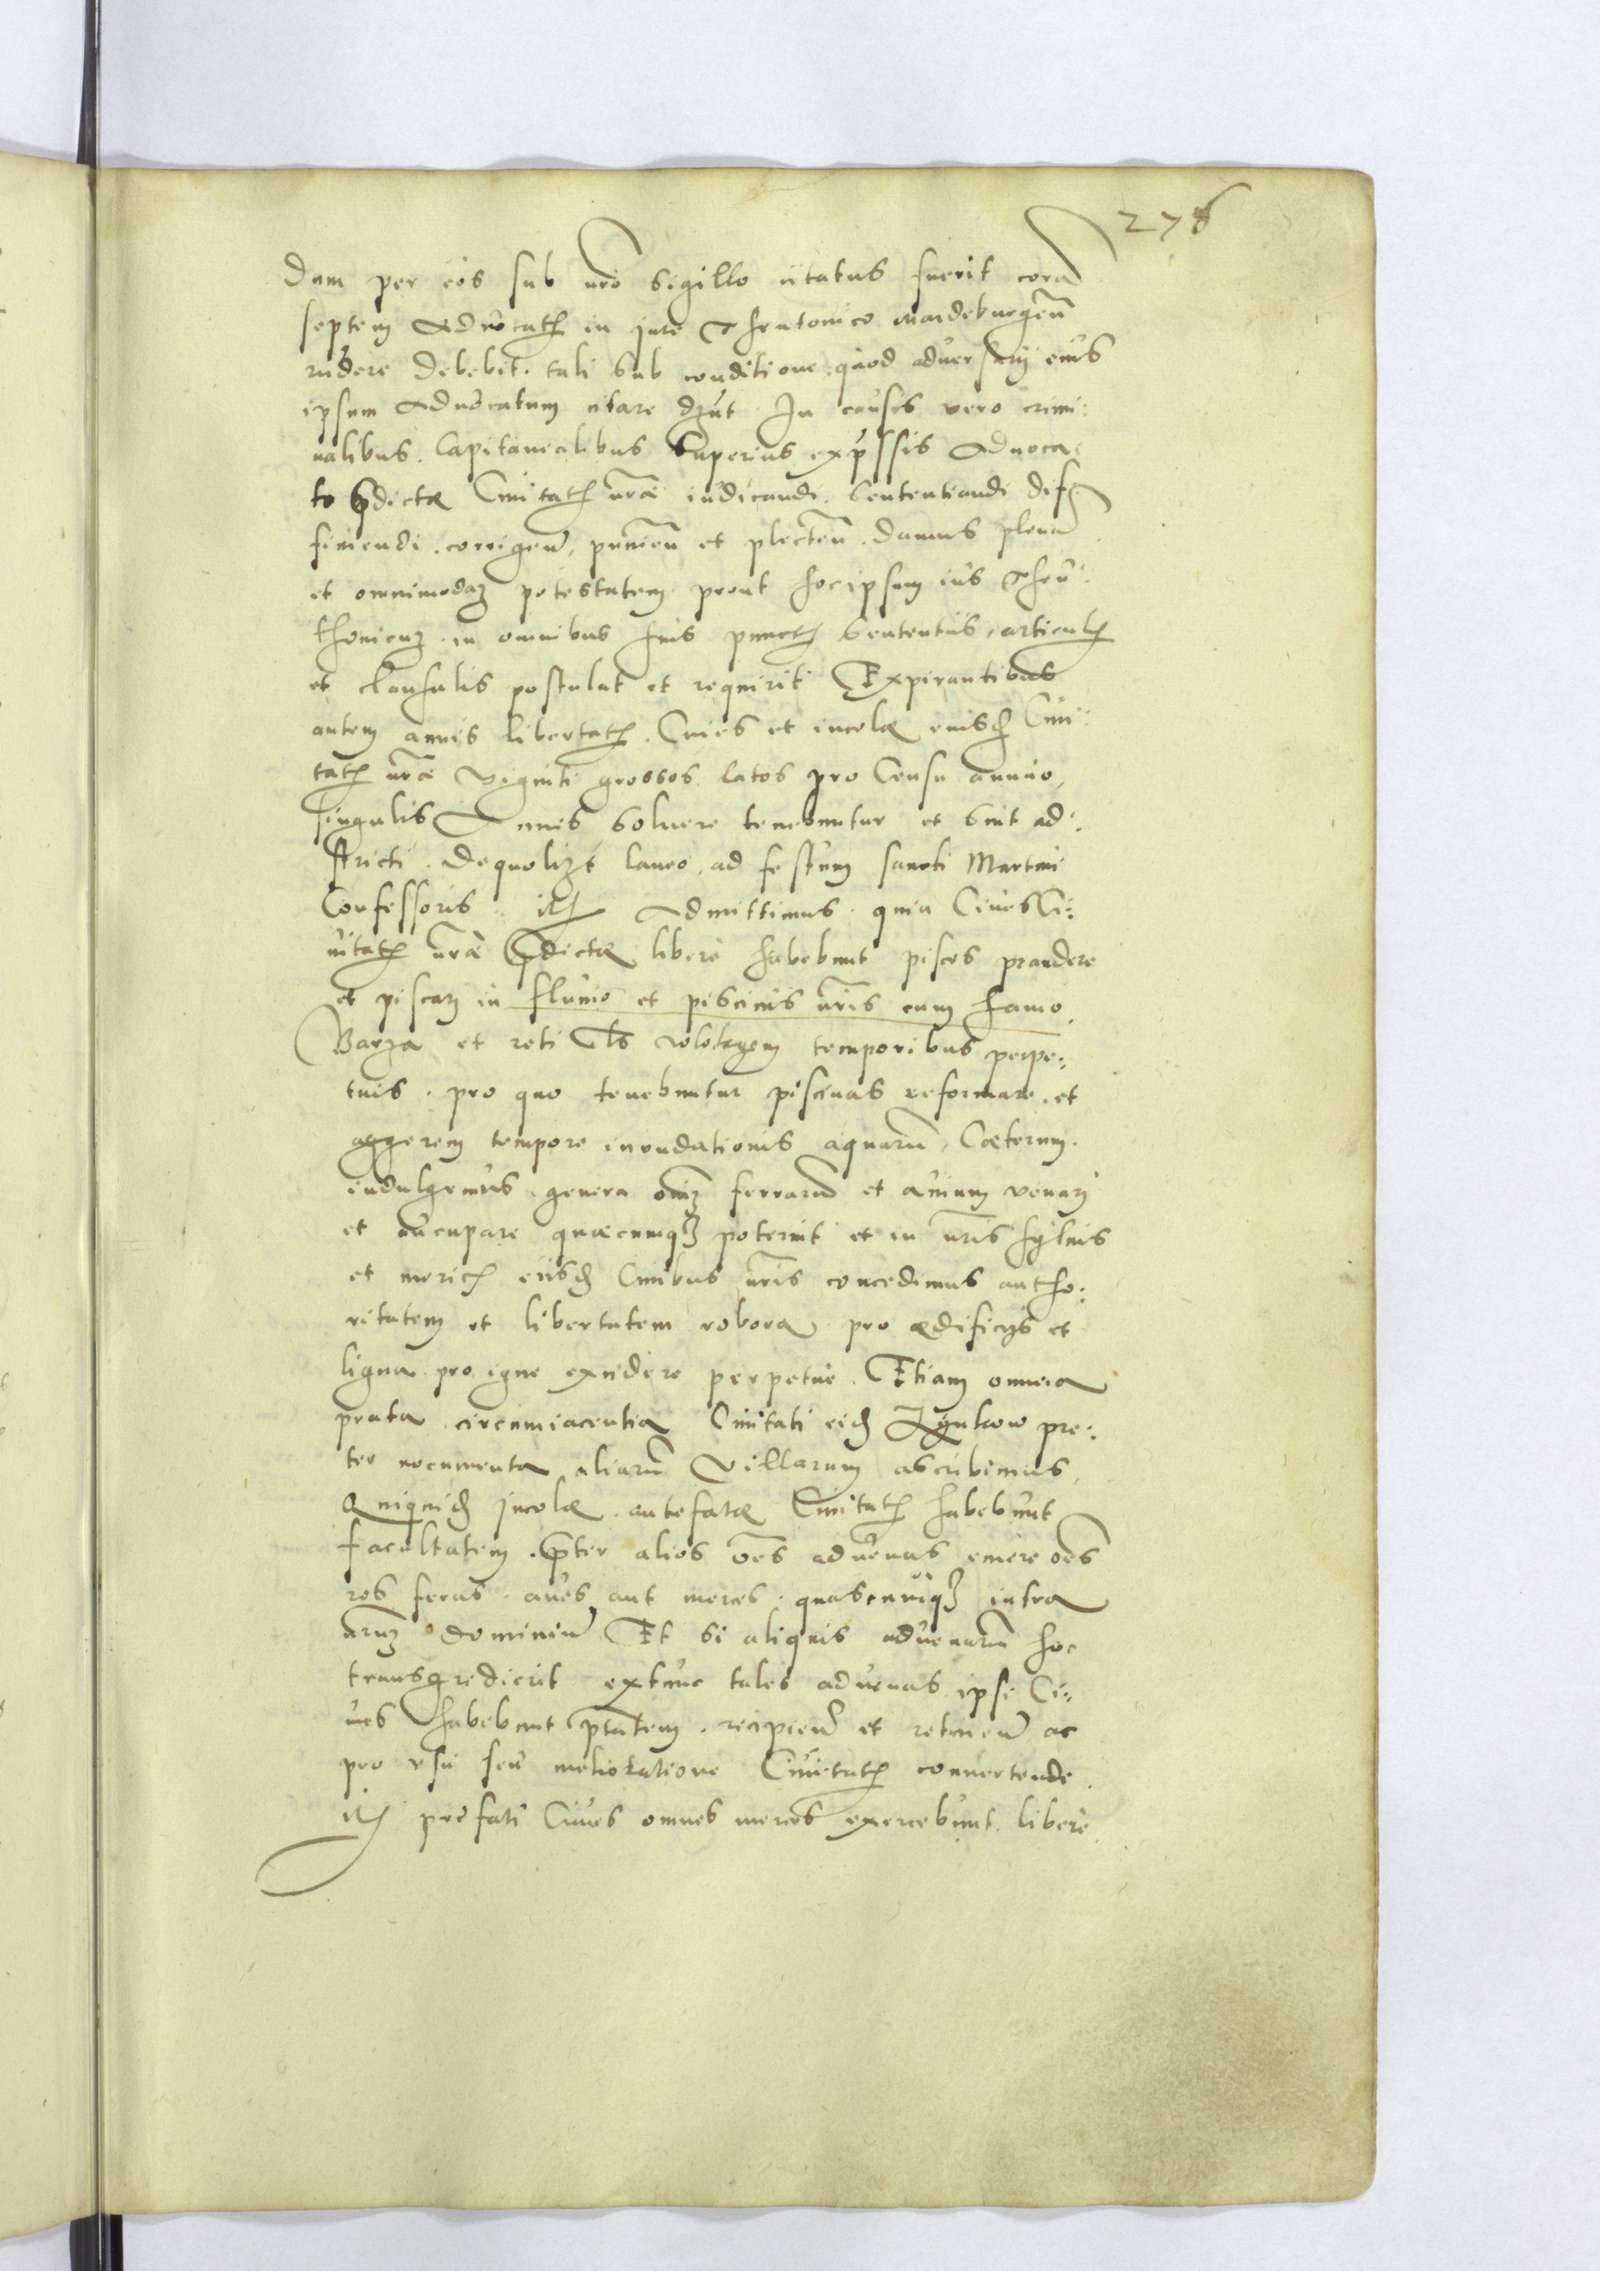 276
Dum per eos sub nr̃o Sigillo citatus fuerit corã
septem Aduocat̃ in jure Theutonico Maideburgeñ
rñdere debebit. tali sub conditione quod aduersarij eius
ipsum Aduocatum citare dẽnt. In causis vero crimi:
nalibus. Capitanealibus superius exp̃ssis Aduoca
to p̃dictæ Ciuitat̃ nr̃æ iudicandi. Sententiandi dif
finiendi. corrigeñ. punieñ et plecteñ. Damus plenã
et omnimodaʒ potestatem prout hoc ipsum ius Theu:
thonicuʒ. in omnibus suis punct̃ Sententiis, articul̃
et clausulis postulat et requirit Expirantibus
autem annis libertat̃. Ciues et incolæ eiusd̃ Ciui:
tat̃ nr̃æ Viginti grossos latos pro Censu annuo,
singulis Annis Soluere tenebuntur et Sint ad:
stricti. De quolibʒ laneo. ad festum sancti Martini
Confessoris. itẽ Admittimus. quia Ciues Ci:
uitat̃ nr̃æ p̃dictæ libere habebunt pisces prandere
et piscari in fluuio et piscinis nr̃is cum hamo
Barza et reti als wlokagem temporibus perpe:
tuis. pro quo tenebuntur piscinas reformare. et
aggerem tempore inundationis aquarũ. Cæterum.
indulgemus. genera om̃ia ferrarũ et auium venari
et aucupare quæcumqʒ poterint et in nr̃is syluis
et meric̃ eiisd̃ Ciuibus nr̃is concedimus autho:
ritatem et libertatem robora pro ædificijs et
ligna pro igne excidere perpetue. Etiam omnia
prata circumiacentia Ciuitati eid̃ Lynkow pre:
ter nocumenta aliarũ Villarum ascribimus,
Quiquid̃ incolæ antefatæ Ciuitat̃ habebunt
facultatem. p̃ter alios oẽs aduenas emere oẽs
res feras. aues aut merces. quascumqʒ infra
nr̃uʒ dominiũ. Et si aliquis aduenarũ hoc
transgredierit extunc tales aduenas ipsi Ci:
ues habebunt p̃tatem. recipieñ et retineñ ac
pro vsu seu melioratione Ciuitat̃ conuertende.
itẽ prefati Ciues omnes merces exercebunt libere